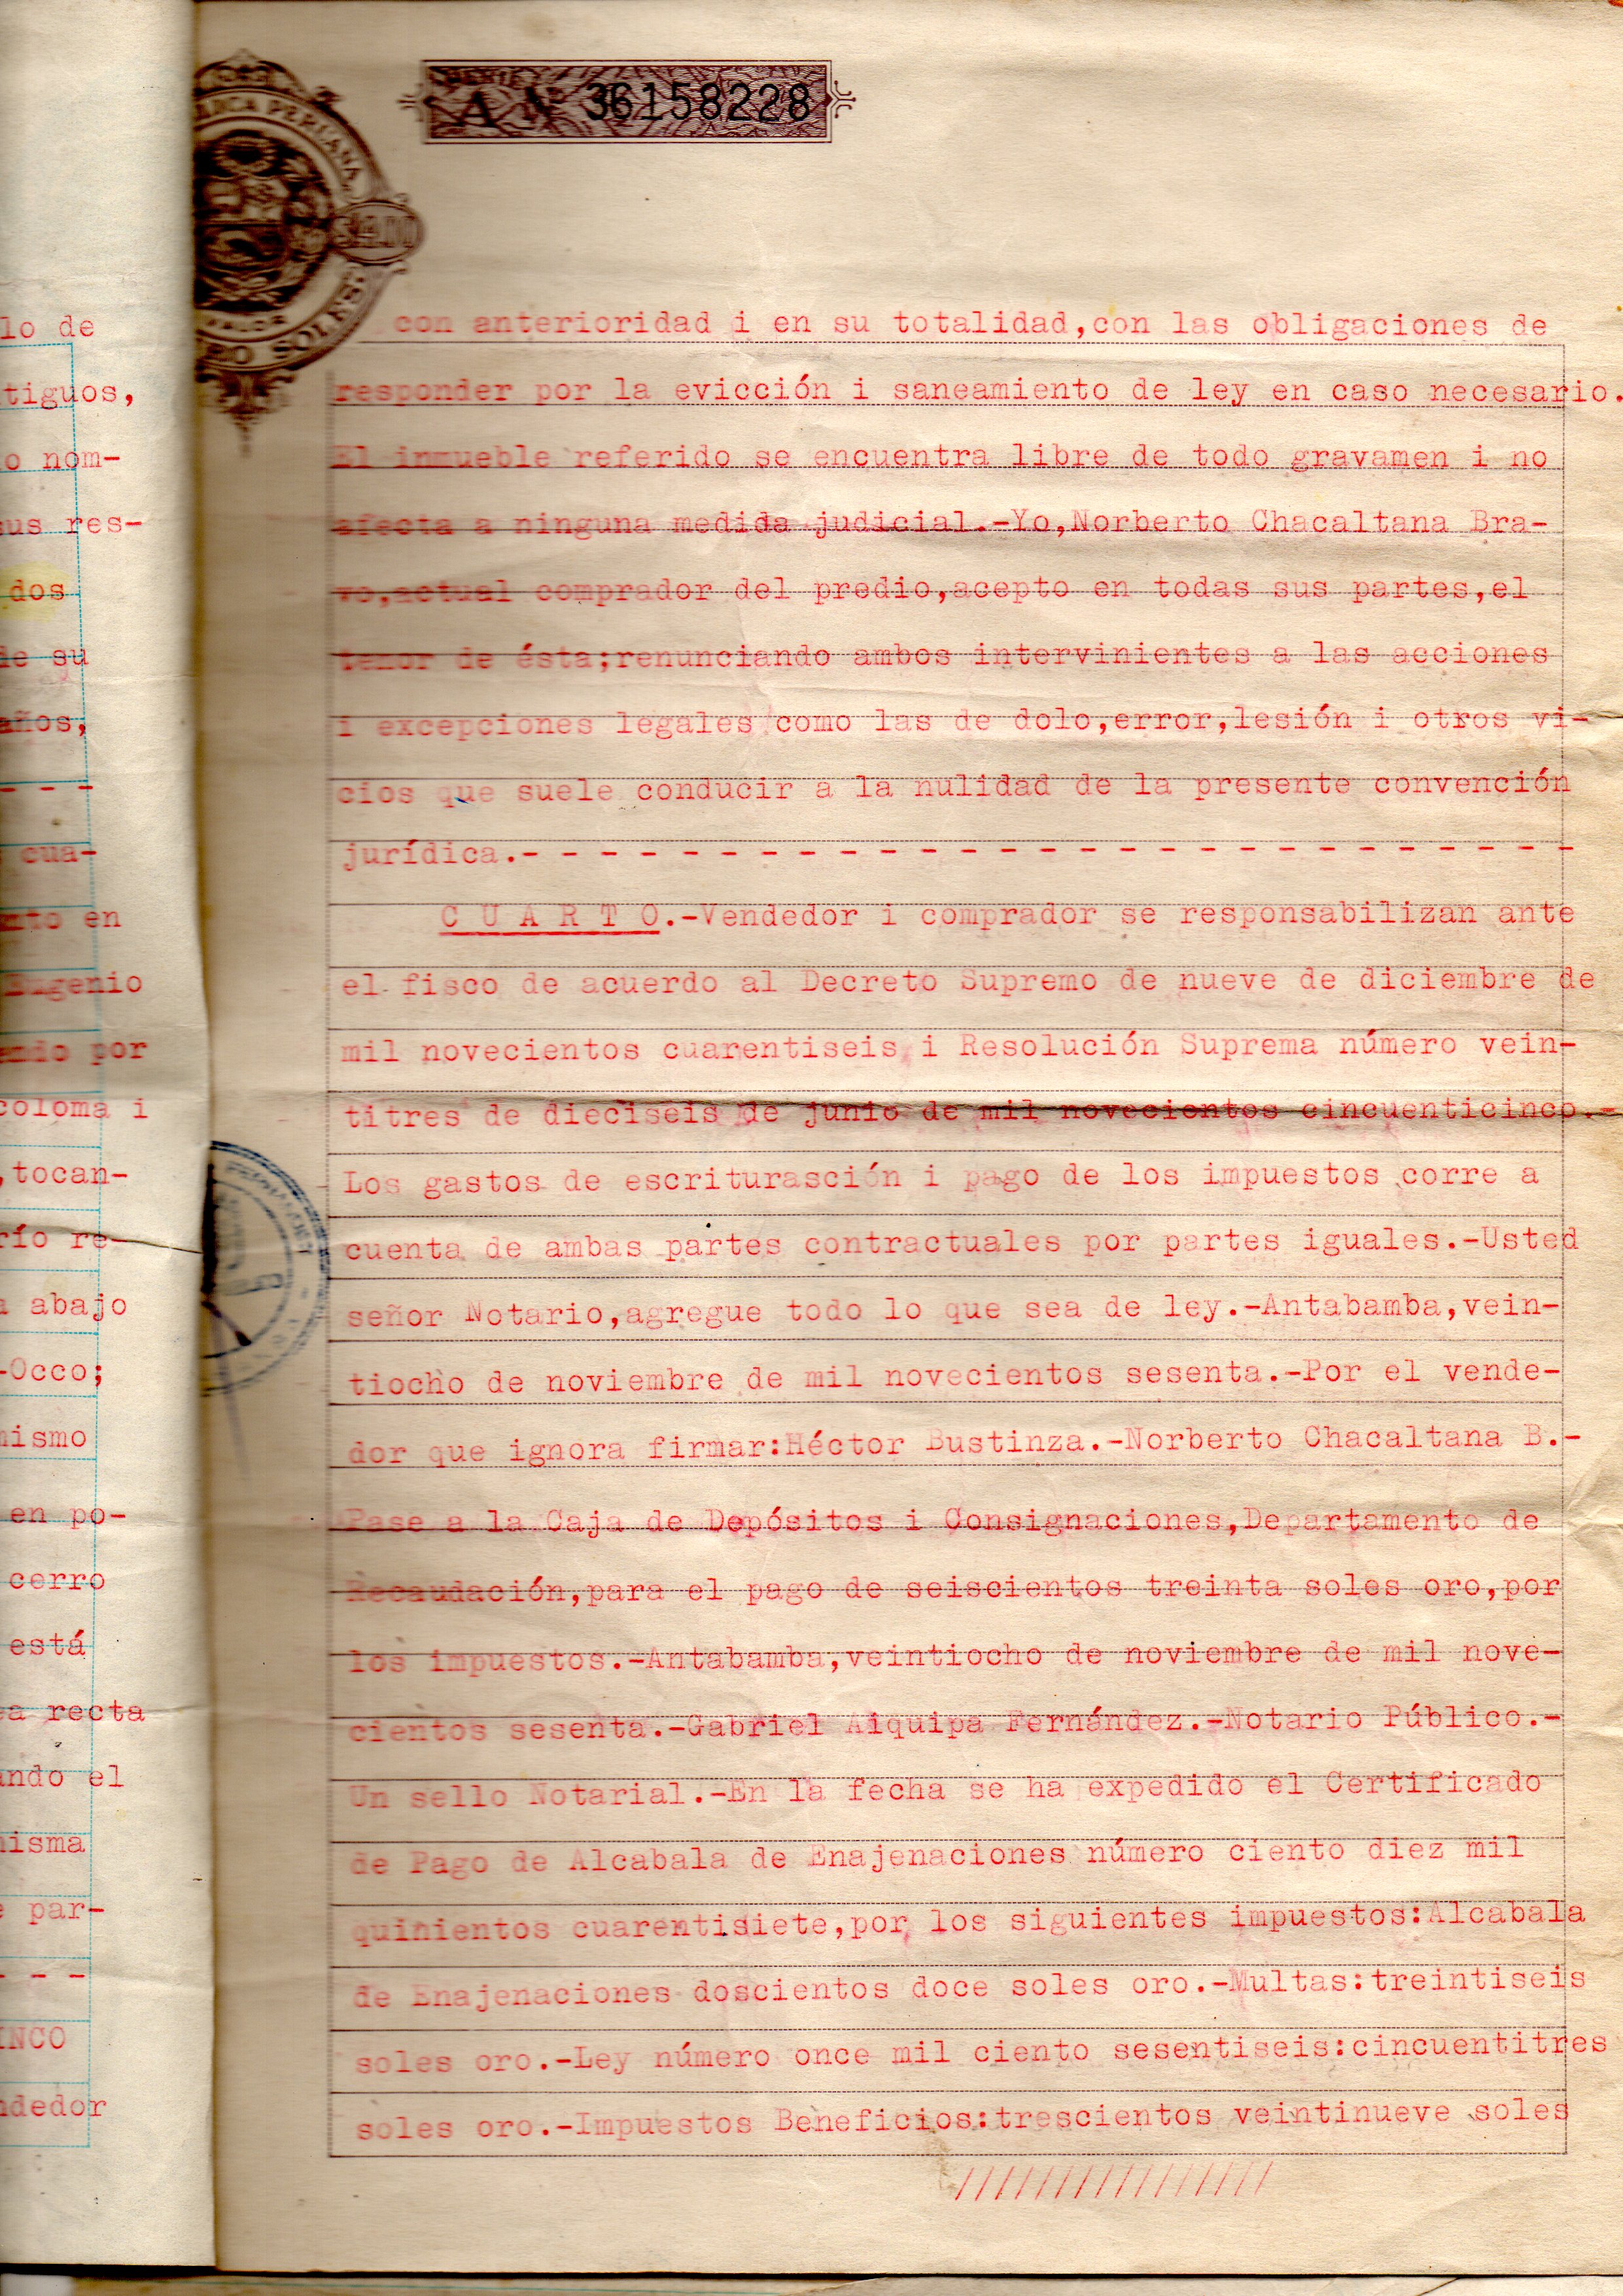 A Nº 36158228
con anterioridad i en su totalidad,con las obligaciones de
responder por la evicción i saneamiento de ley en caso necesario.
El inmueble referido se encuentra libre de todo gravamen i no
afecta a ninguna medida judicial.-Yo,Norberto Chacaltana Bra-
vo,actual comprador del predio,acepto en todas sus partes,el
tenor de ésta;renunciando ambos intervinientes a las acciones
i excepciones legales como las de dolo,error,lesión i otros vi-
cios que suele conducir a la nulidad de la presente convención
jurídica.- - - - - - - - - - - - - - - - - - - - - - - - - - -
C U A R T O.-Vendedor i comprador se responsabilizan ante
el fisco de acuerdo al Decreto Supremo de nueve de diciembre de
mil novecientos cuarentiseis i Resolución Suprema número vein-
titres de dieciseis de junio de mil novecientos cincuenticinco.-
Los gastos de escriturasción i pago de los impuestos corre a
cuenta de ambas partes contractuales por partes iguales.-Usted
señor Notario,agregue todo lo que sea de ley.-Antabamba,vein-
tiocho de noviembre de mil novecientos sesenta.-Por el vende-
dor que ignora firmar:Héctor Bustinza.-Norberto Chacaltana B.-
Pase a la Caja de Depósitos i Consignaciones,Departamento de
Recaudación,para el pago de seiscientos treinta soles oro,por
los impuestos.-Antabamba,veintiocho de noviembre de mil nove-
cientos sesenta.-Gabriel Aiquipa Fernández.-Notario Público.-
Un sello Notarial.-En la fecha se ha expedido el Certificado
de Pago de Alcabala de Enajenaciones número ciento diez mil
quinientos cuarentisiete,por los siguientes impuestos:Alcabala
de Enajenaciones doscientos doce soles oro.-Multas:treintiseis
soles oro.-Ley número once mil ciento sesentiseis:cincuentitres
soles oro.-Impuestos Beneficios:trescientos veintinueve soles
////////////////
lo de
tiguos,
o nom-
sus res-
dos
de su
años,
- - -
cua-
en
Eugenio
por
coloma i
,tocan-
río re-
abajo
-Occo;
mismo
en po-
cerro
está
recta
ando el
misma
par-
- - -
INCO
ndedor